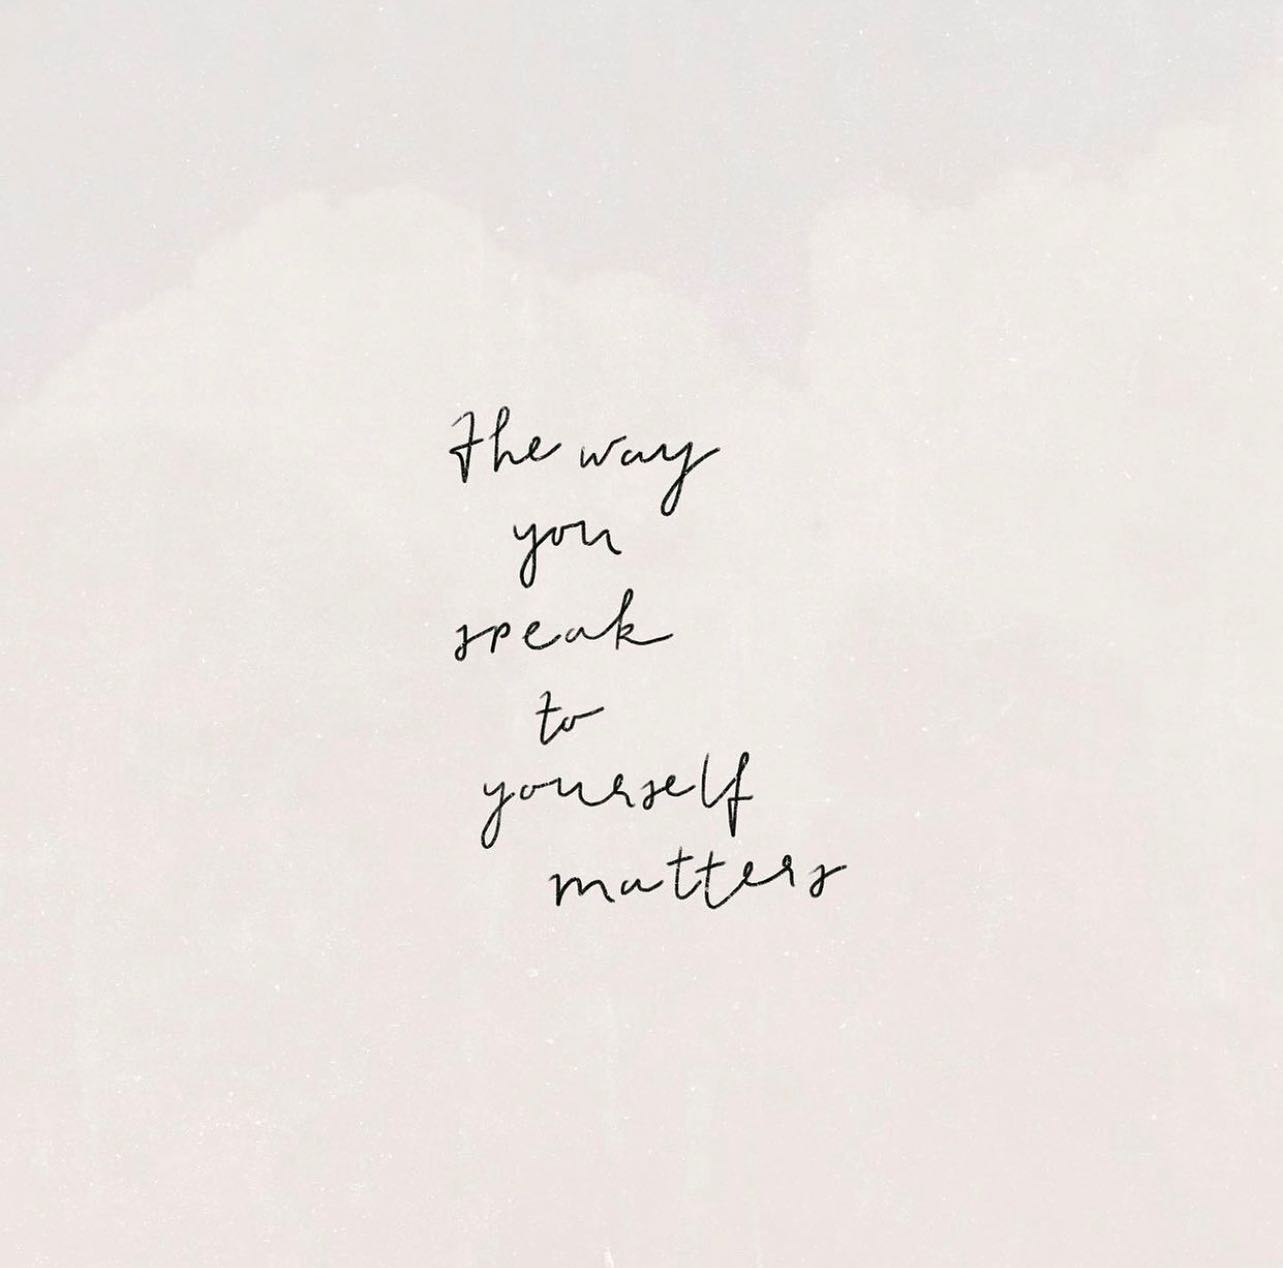 the way
you
speak
to
yourself
matters